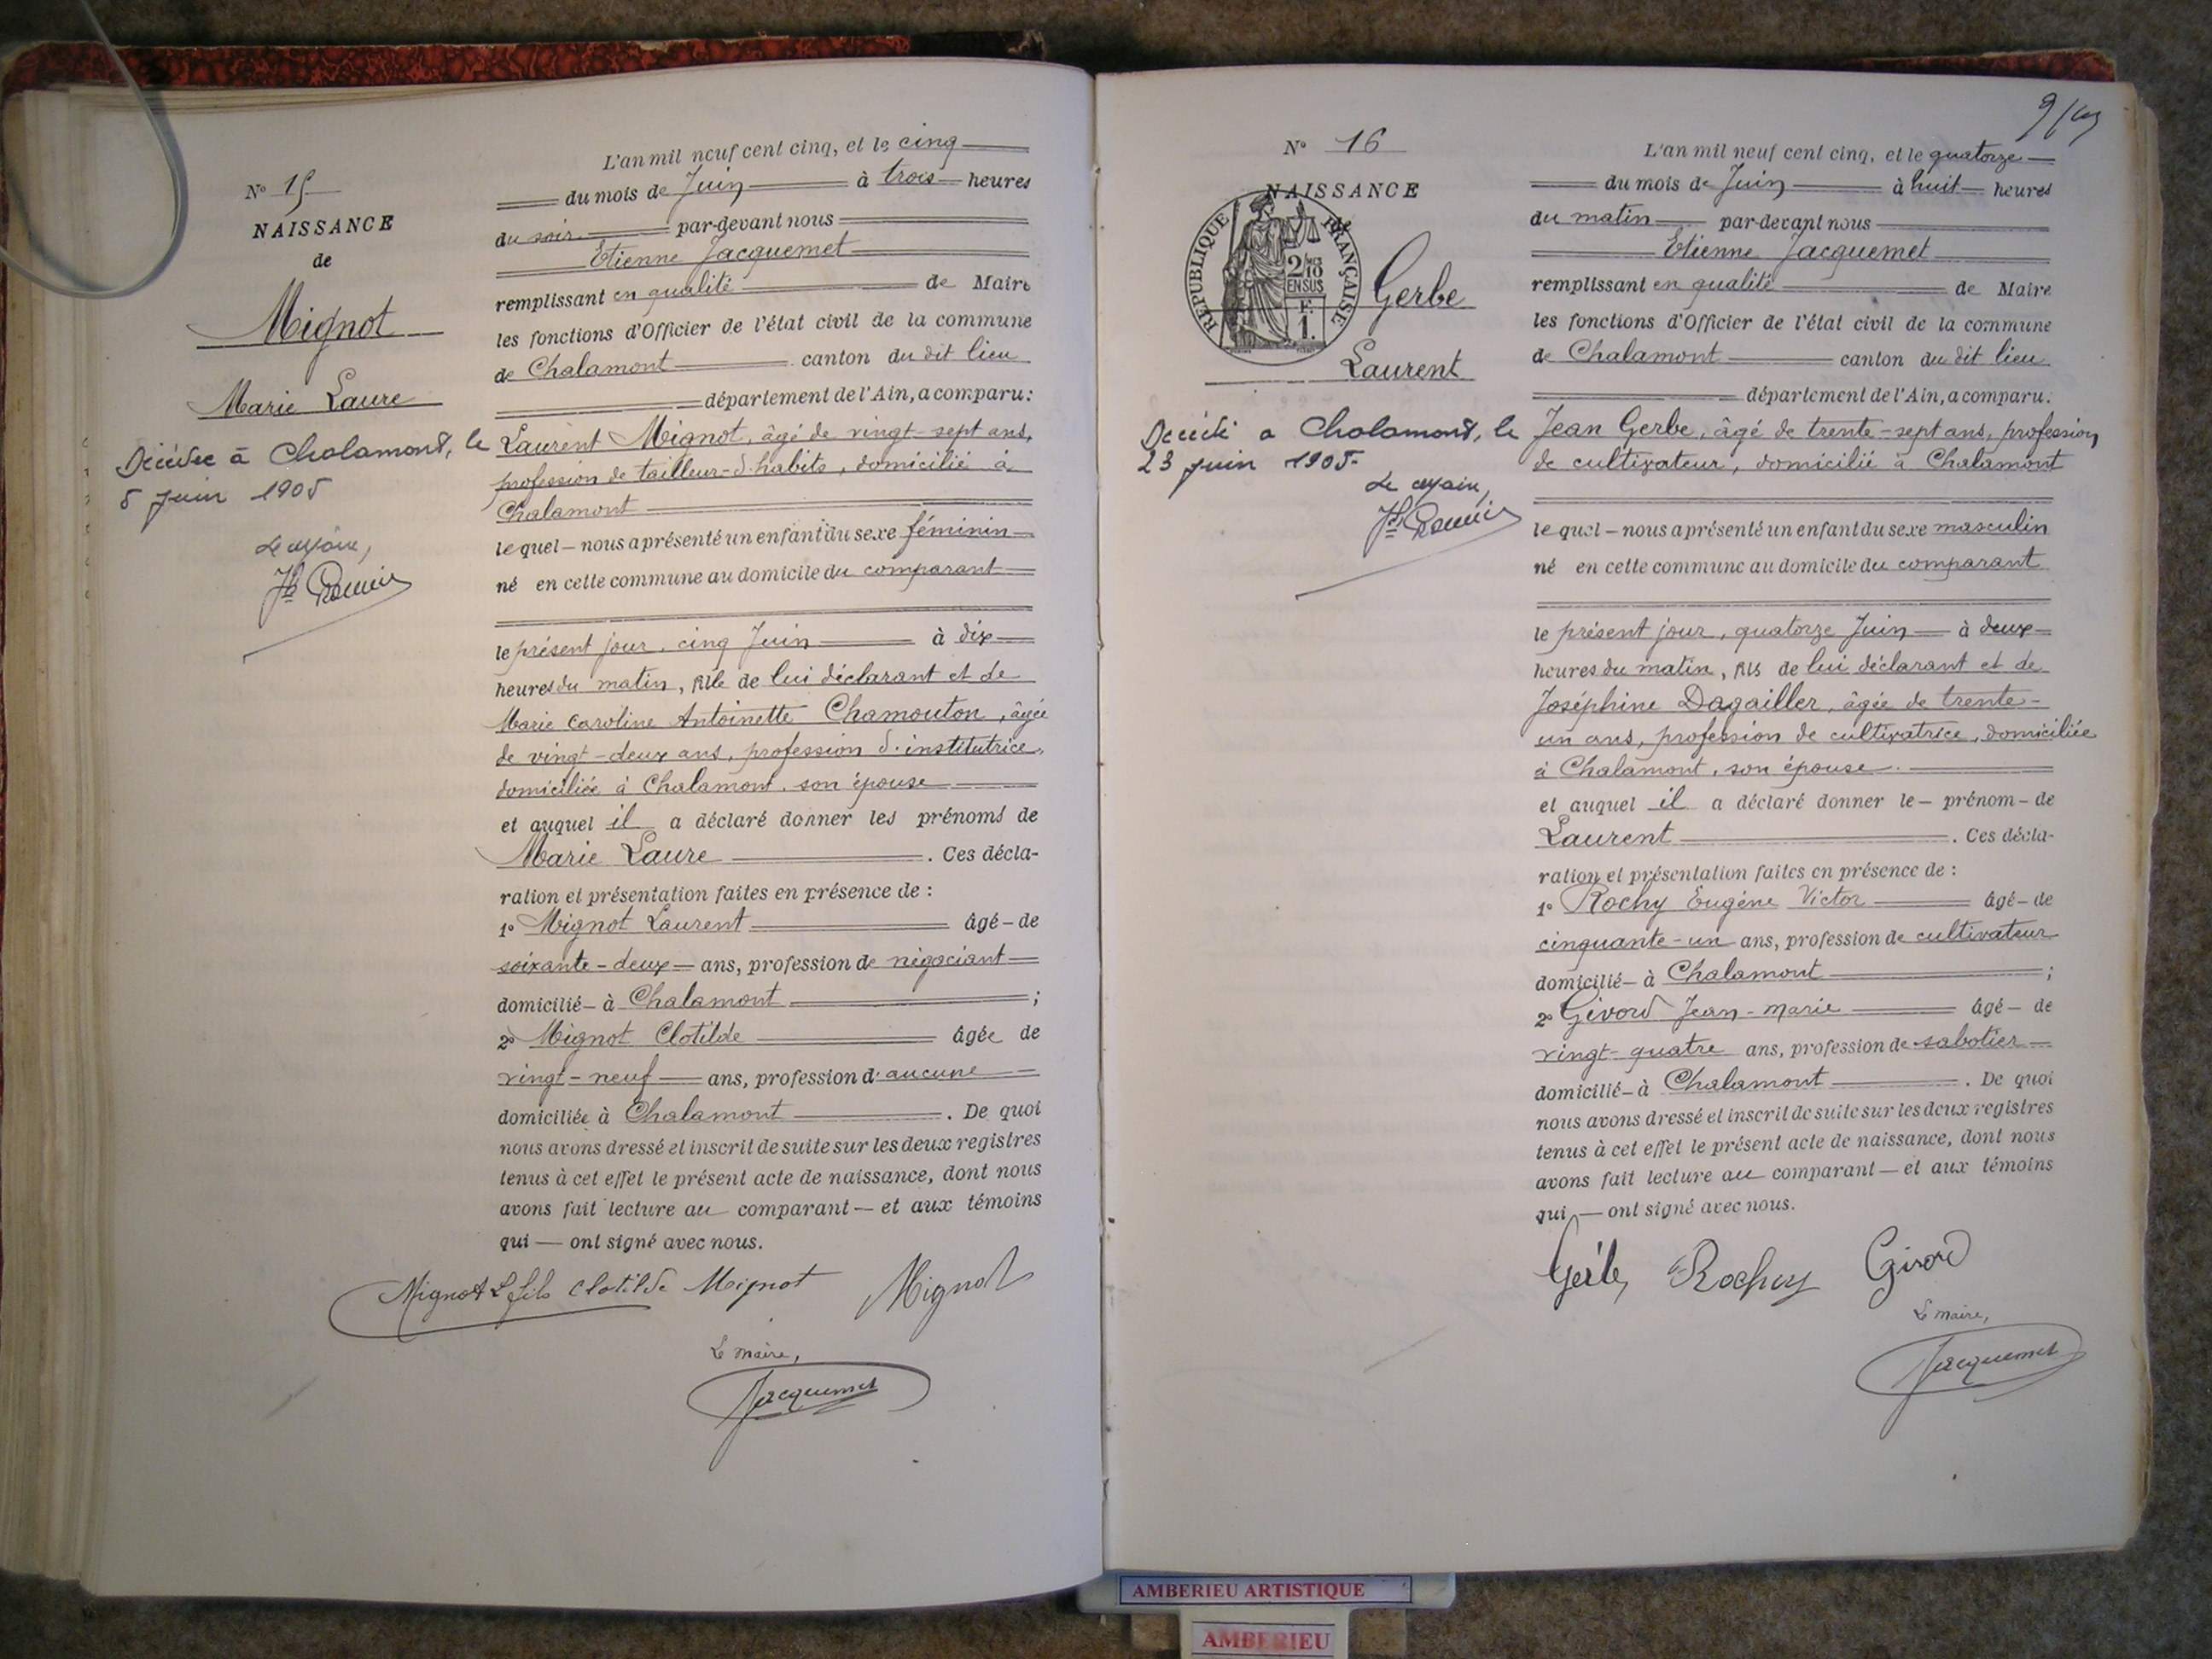 N° 15
NAISSANCE
de
Mignot
Marie Laure
Décédée à Chalamont, le
5 juin 1905
Le maire,
L'an mil neuf cent cinq, et le cinq
du mois de Juin à trois heures
du soir par-devant nous
Etienne Jacquemet
remplissant en qualité de Maire
les fonctions d'Officier de l'état civil de la commune
de Chalamont canton du dit lieu
département de l'Ain, a comparu:
Laurent Mignot, âgé de vingt-sept ans,
profession de tailleur-d'habits, domicilié à
Chalamont
le quel - nous a présenté un enfant du sexe féminin
né en cette commune au domicile du comparant
le présent jour, cinq Juin à dix
heures du matin, fille de lui déclarant et de
Marie Caroline Antoinette Chamouton, âgée
de vingt-deux ans, profession d'institutrice,
domiciliée à Chalamont, son épouse
et auquel il a déclaré donner les prénoms de
Marie Laure . Ces décla-
ration et présentation faites en présence de :
1° Mignot Laurent âgé - de
soixante-deux - ans, profession de négociant
domicilié - à Chalamont ;
2° Mignot Clotilde âgée de
vingt-neuf ans, profession d'aucune
domiciliée à Chalamont . De quoi
nous avons dressé et inscrit de suite sur les deux registres
tenus à cet effet le présent acte de naissance, dont nous
avons fait lecture au comparant - et aux témoins
qui - ont signé avec nous.
Mignot L fils Clotilde Mignot Mignot
Le maire,
Jacquemet
N° 16
NAISSANCE
REPUBLIQUE FRANÇAISE
2/10
EN SUS
F.
1.
Gerbe
Laurent
Décédé à Chalamont, le
23 juin 1905.
Le maire,
L'an mil neuf cent cinq, et le quatorze
du mois de Juin à huit heures
du matin par-devant nous
Etienne Jacquemet
remplissant en qualité de Maire
les fonctions d'Officier de l'état civil de la commune
de Chalamont canton du dit lieu
département de l'Ain, a comparu:
Jean Gerbe, âgé de trente-sept ans, profession
de cultivateur, domicilié à Chalamont
le quel - nous a présenté un enfant du sexe masculin
né en cette commune au domicile du comparant
le présent jour, quatorze Juin à deux
heures du matin, fils de lui déclarant et de
Joséphine Dagailler, âgée de trente-
un ans, profession de cultivatrice, domiciliée
à Chalamont, son épouse
et auquel il a déclaré donner le - prénom - de
Laurent . Ces décla-
ration et présentation faites en présence de :
1° Rochy Eugène Victor âgé - de
cinquante-un ans, profession de cultivateur
domicilié - à Chalamont ;
2° Givord Jean-marie âgé - de
vingt-quatre ans, profession de sabotier
domicilié - à Chalamont . De quoi
nous avons dressé et inscrit de suite sur les deux registres
tenus à cet effet le présent acte de naissance, dont nous
avons fait lecture au comparant - et aux témoins
qui - ont signé avec nous.
Gerbe Rochy Givord
Le maire,
Jacquemet
AMBERIEU ARTISTIQUE
AMBERIEU